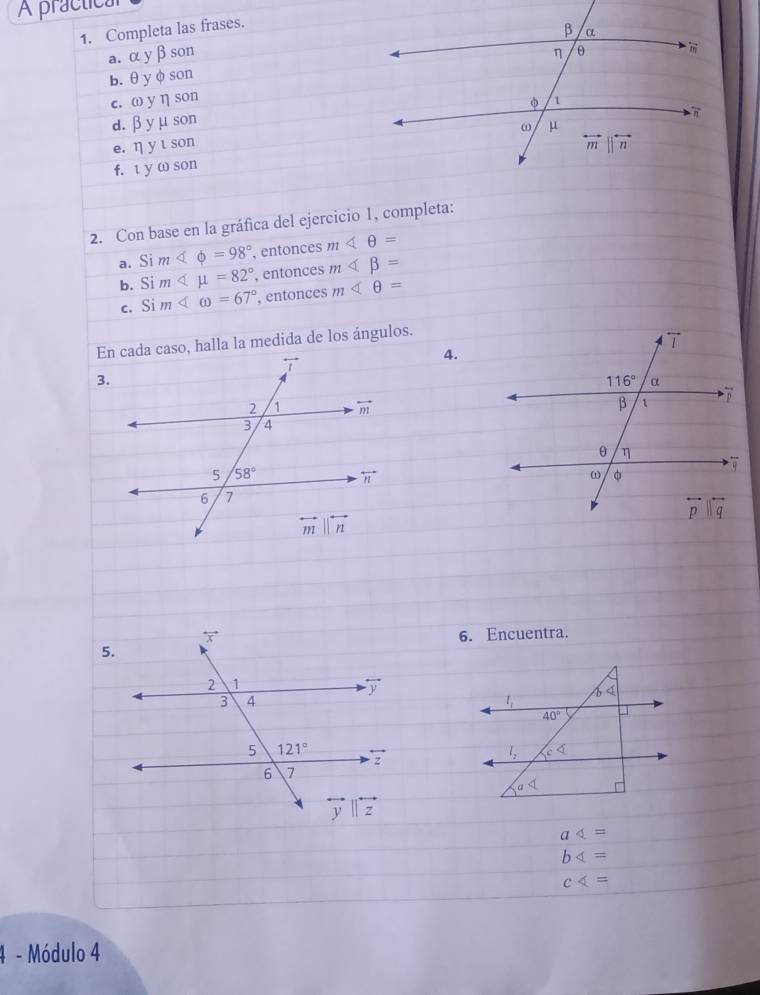 A practicar
1. Completa las frases.
a. α y β son
b. θ y ϕ son
c. ω y η son
d. β y μ son
e. η y ι son
f. ι y ω son
β α
η θ
m
ϕ ι
n
ω μ
m || n
2. Con base en la gráfica del ejercicio 1, completa:
a. Si m ∢ ϕ = 98°, entonces m ∢ θ =
b. Si m ∢ μ = 82°, entonces m ∢ β =
c. Si m ∢ ω = 67°, entonces m ∢ θ =
En cada caso, halla la medida de los ángulos.
3.
2 1
m
3 4
5 58°
n
6 7
m || n
4.
l
116° α
p
β ι
θ η
q
ω ϕ
p || q
5.
x
2 1
y
3 4
5 121°
z
6 7
y || z
6. Encuentra.
b ∢
l₁
40°
l₂
c ∢
a ∢
a ∢ =
b ∢ =
c ∢ =
4 - Módulo 4